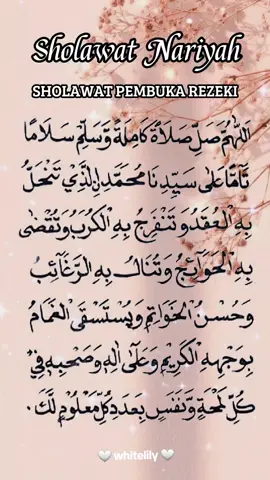 Sholawat Nariyah
SHOLAWAT PEMBUKA REZEKI
اَللّٰهُمَّ صَلِّ صَلَاةً كَامِلَةً وَّسَلِّمْ سَلَامًا
تَآمًّا عَلٰى سَيِّدِنَا مُحَمَّدِنِ الَّذِيْ تَنْحَلُّ
بِهِ الْعُقَدُ وَتَنْفَرِجُ بِهِ الْكُرَبُ وَتُقْضٰى
بِهِ الْحَوَآئِجُ وَتُنَالُ بِهِ الرَّغَآئِبُ
وَحُسْنُ الْخَوَاتِمِ وَيُسْتَسْقَى الْغَمَامُ
بِوَجْهِهِ الْكَرِيْمِ وَعَلٰى اٰلِهٖ وَصَحْبِهٖ فِيْ
كُلِّ لَمْحَةٍ وَّنَفَسٍ بِعَدَدِ كُلِّ مَعْلُوْمٍ لَّكَ.
🤍 whitelily 🤍